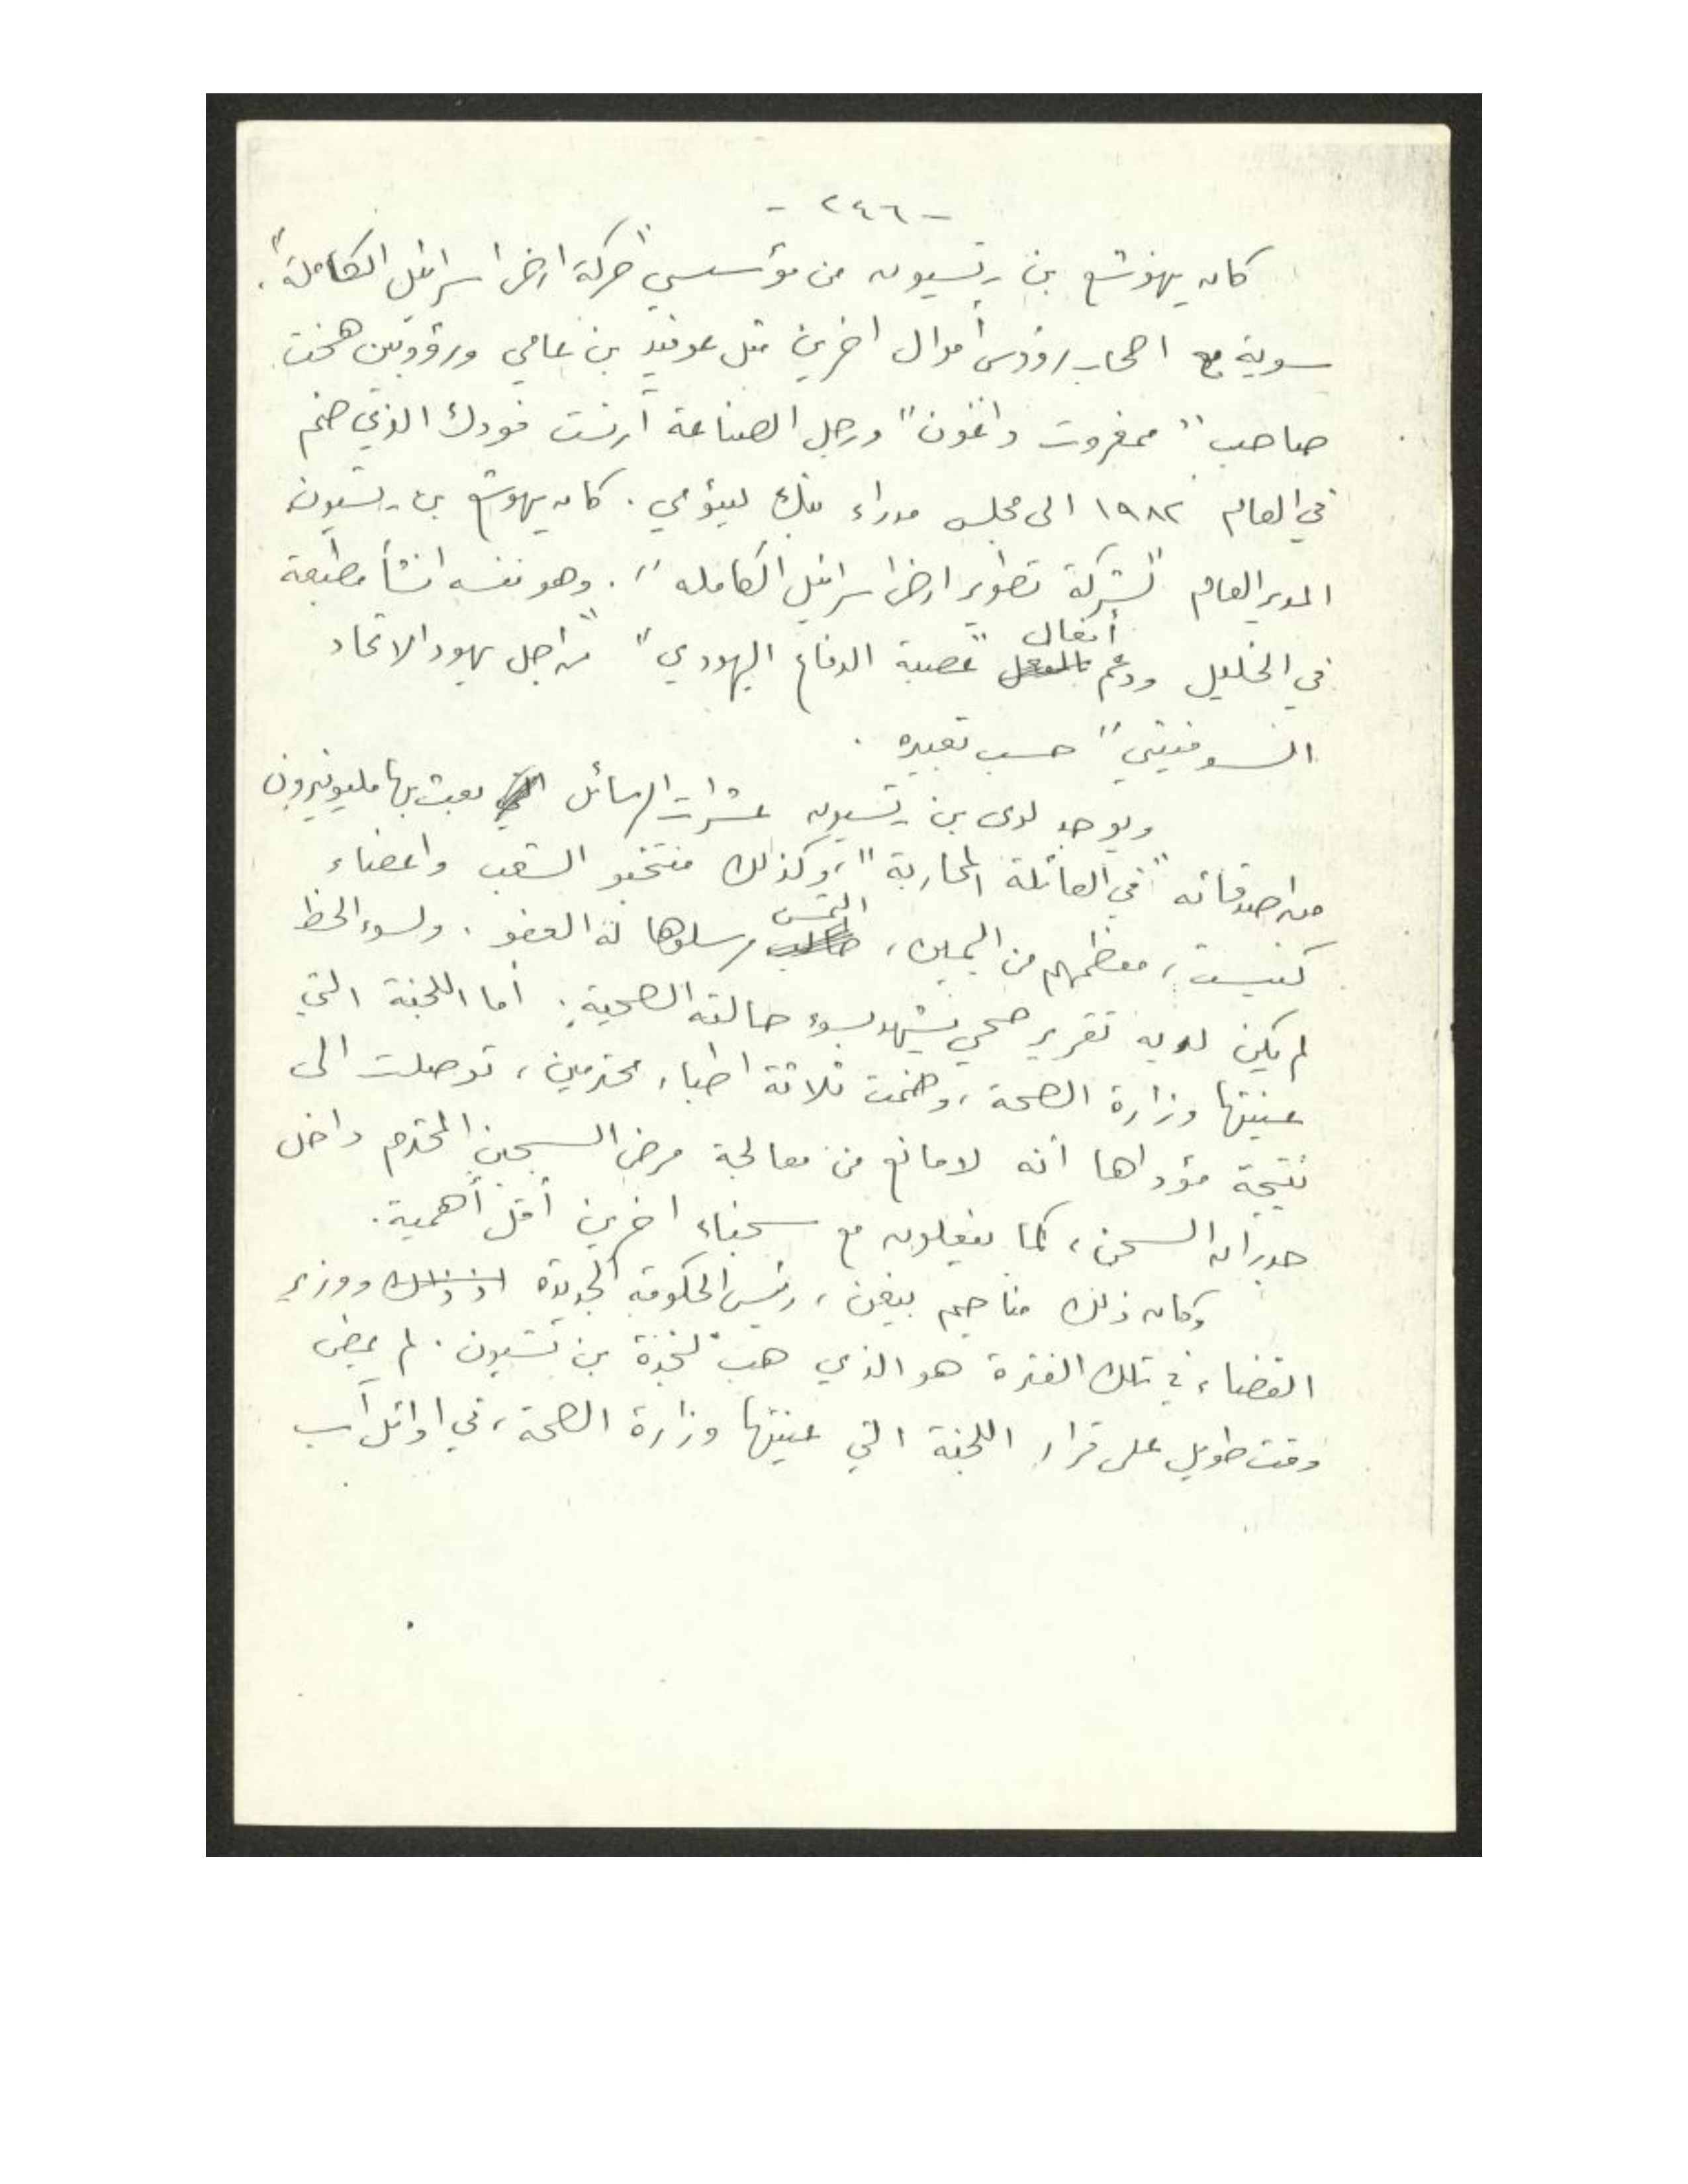 - ٢٤٦ -
كان يهوشع بن تسيون من مؤسسي "حركة ارض اسرائيل الكاملة".
سوية مع اصحاب رؤوس أموال اخرين مثل عوفيد بن عامي ورؤوبين هخت
صاحب "ممغروت داغون" ورجل الصناعة ارنست فودك الذي ضم
في العام ١٩٨٢ الى مجلس مدراء بنك ليئومي. كان يهوشع بن تسيون
المدير العام "لشركة تطوير ارض اسرائيل الكامله". وهو نفسه انشأ مطبعة
في الخليل ودعم أفعال "عصبة الدفاع اليهودي" "من اجل يهود الاتحاد
السوفييتي" حسب تعبيره.
ويوجد لدى بن تسيون عشرات الرسائل بعث بها مليونيرون
من اصدقائه "في العائلة المحاربة"، وكذلك منتخبو الشعب واعضاء
كنيست، معظمهم من اليمين، التمس مرسلوها له العفو. ولسوء الحظ
لم يكن لديه تقرير صحي يشهد بسوء حالته الصحية. أما اللجنة التي
عينتها وزارة الصحة، وضمت ثلاثة اطباء محترمين، توصلت الى
نتيجة مؤداها أنه لا مانع من معالجة مرض السجين المحترم داخل
جدران السجن، كما يفعلون مع سجناء اخرين أقل أهمية.
وكان ذلك مناحيم بيغن، رئيس الحكومة الجديدة ووزير
القضاء في تلك الفترة هو الذي هب لنجدة بن تسيون. لم يمض
وقت طويل على قرار اللجنة التي عينتها وزارة الصحة، في اوائل آب